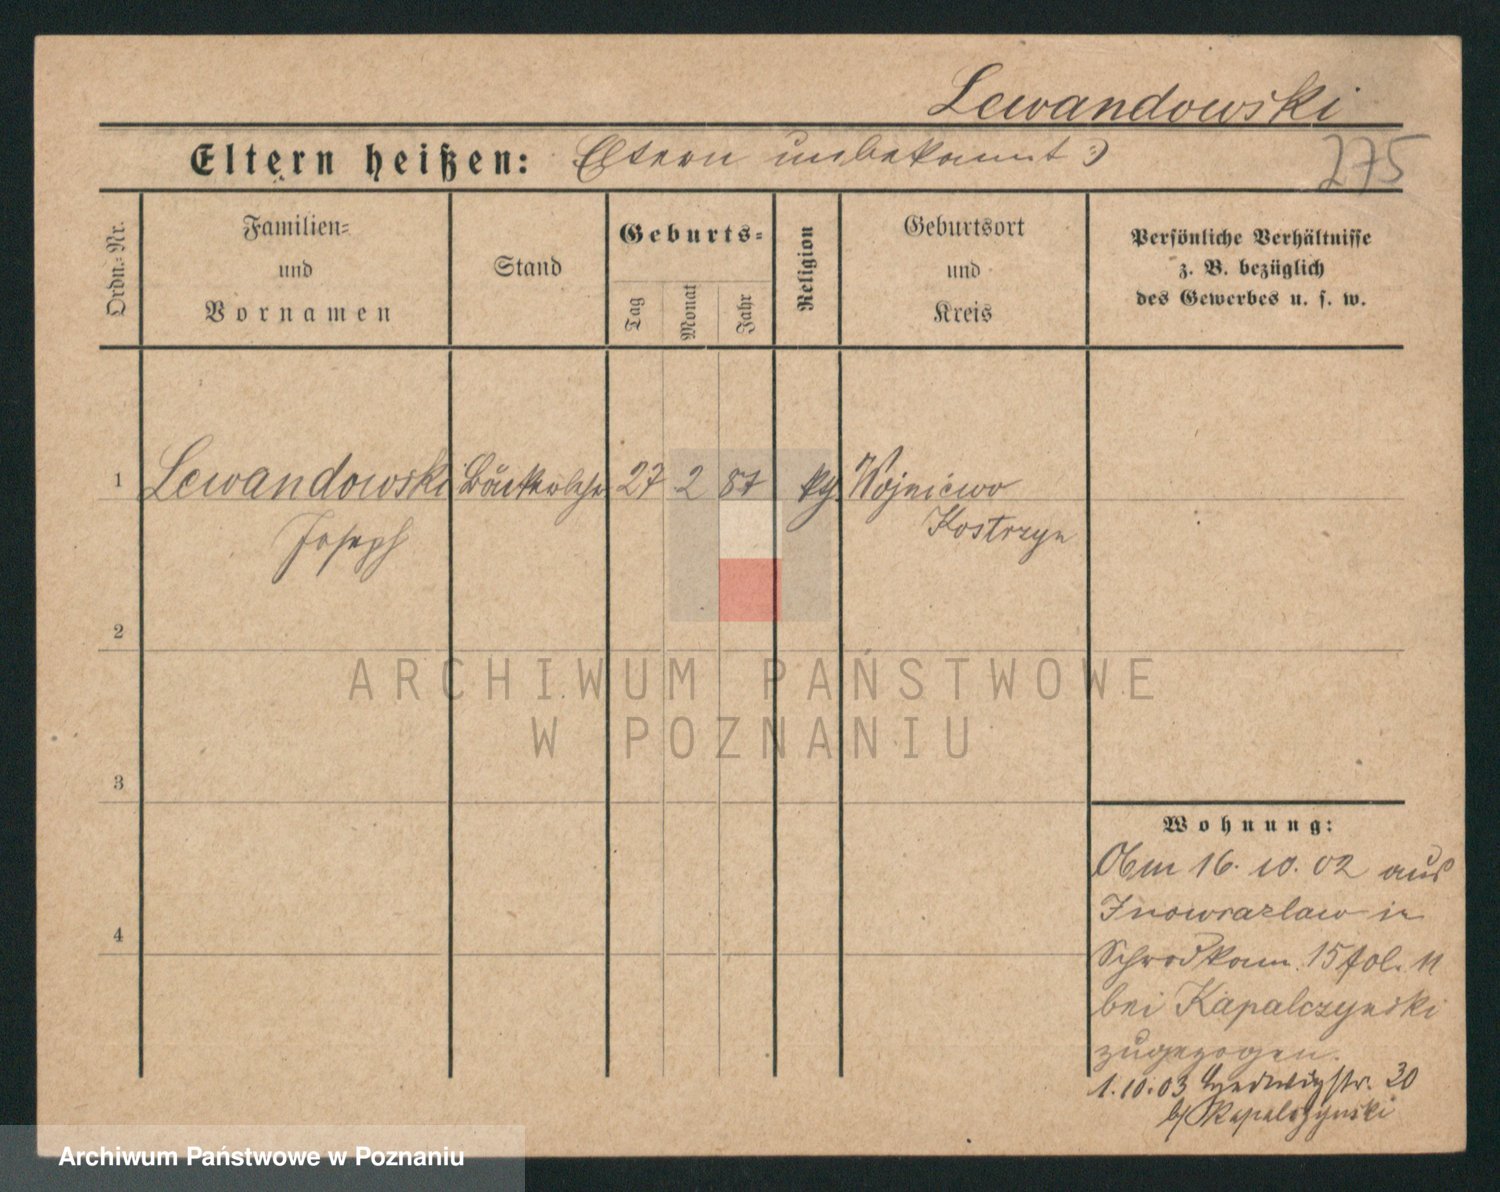 Lewandowski
Eltern heißen: Eltern unbekannt
275
Ordn.-Nr.
Familien-
und
Vornamen
Stand
Geburts-
Tag
Monat
Jahr
Religion
Geburtsort
und
Kreis
Persönliche Verhältnisse
z. B. bezüglich
des Gewerbes u. s. w.
1 Lewandowski Bäckerlehr 27 2 87 Wojniewo
Joseph Kostrzyn
2
ARCHIWUM PAŃSTWOWE
W POZNANIU
3
Wohnung:
Am 16. 10. 02 aus
Inowrazlaw in
15 fol. 11
bei Kapalczynski
zugezogen.
1.10.03 Hedwigstr. 30
b/ Kapalczynski
4
Archiwum Państwowe w Poznaniu